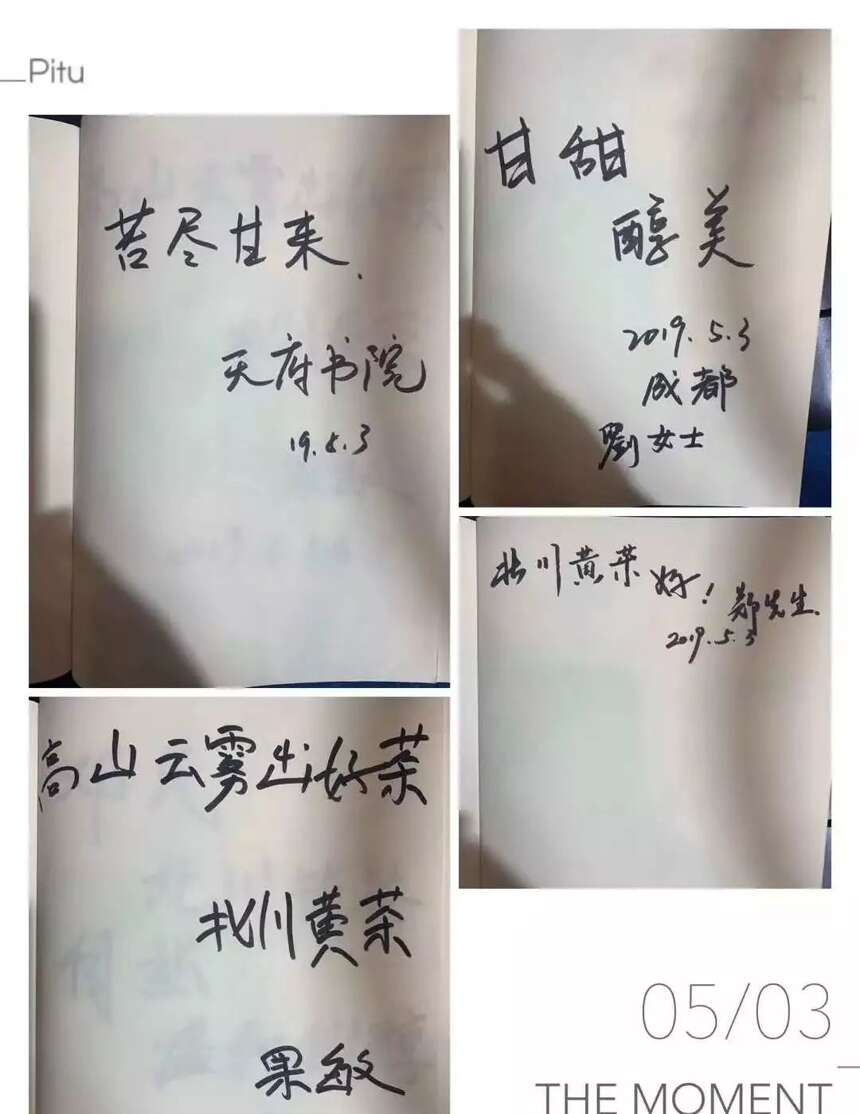 Pitu
苦尽甘来.
天府书院
19.5.3
甘甜
醇美
2019.5.3
成都
劉女士
北川黄茶好!
郑先生.
2019.5.3
高山云雾出好茶
北川黄茶
果敏
05/03
THE MOMENT